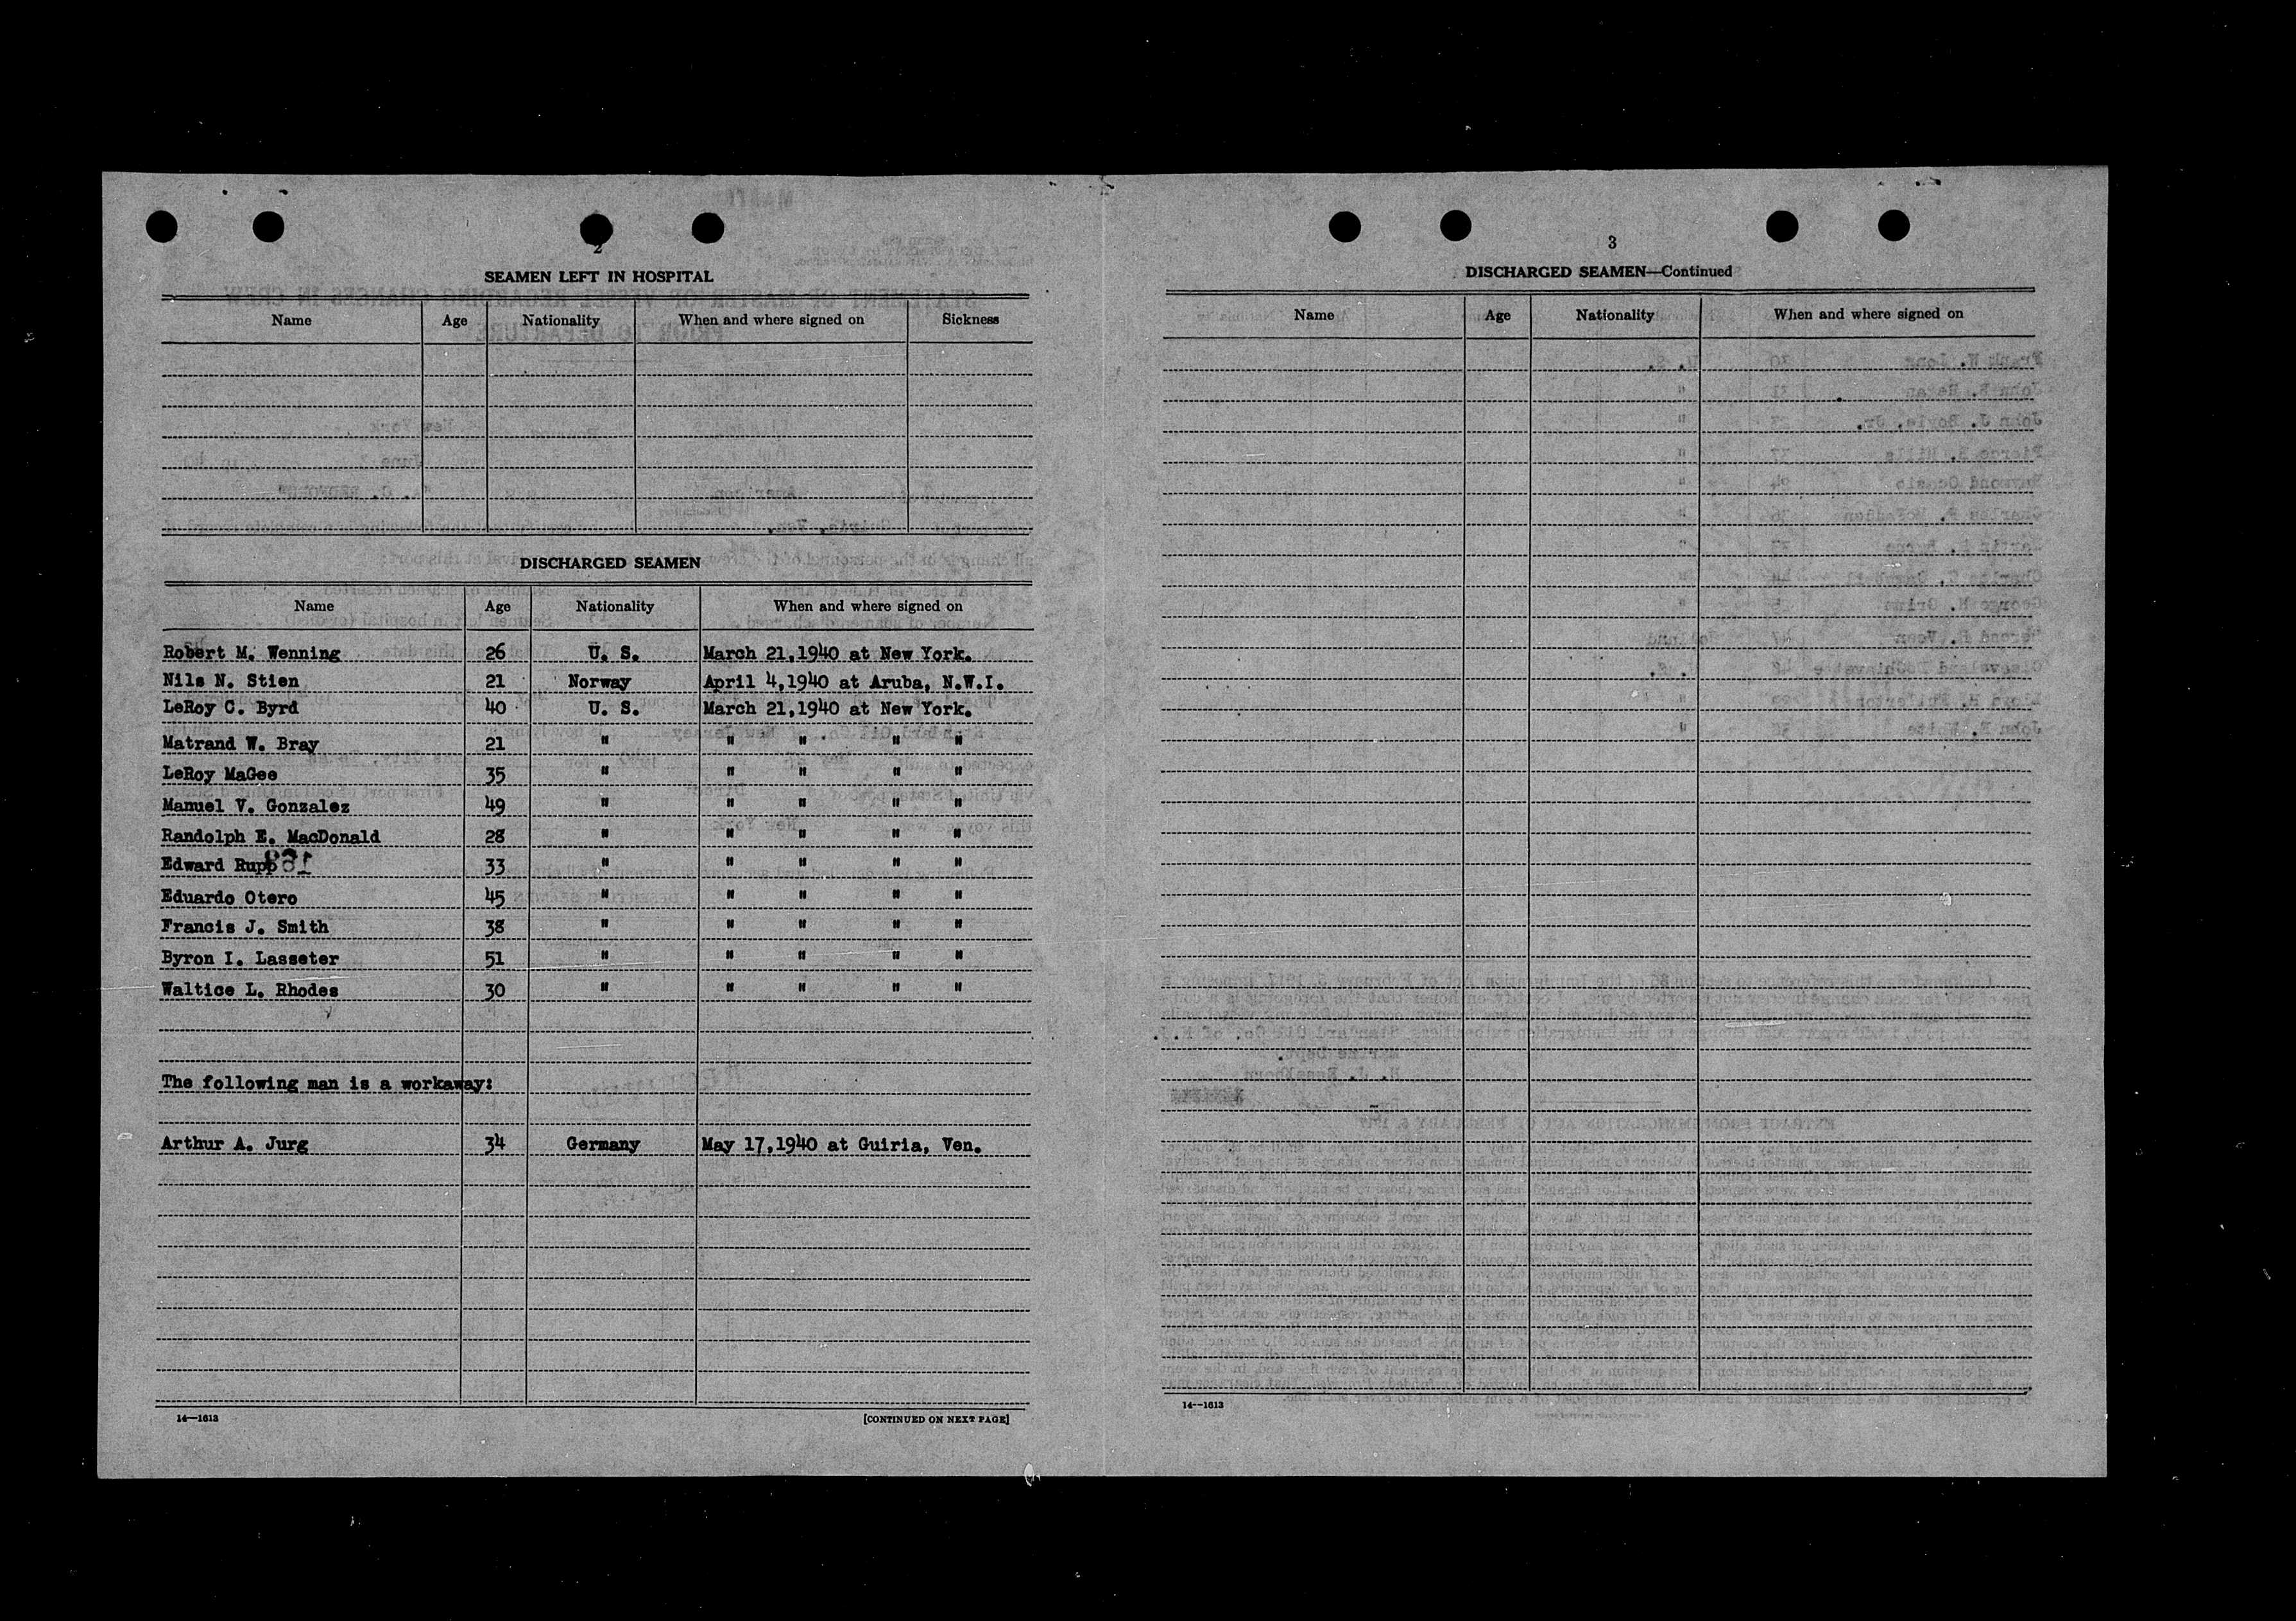 2
SEAMEN LEFT IN HOSPITAL
Name Age Nationality When and where signed on Sickness
DISCHARGED SEAMEN
Name Age Nationality When and where signed on
Robert M. Wenning 26 U. S. March 21,1940 at New York.
Nils N. Stien 21 Norway April 4,1940 at Aruba, N.W.I.
LeRoy C. Byrd 40 U. S. March 21,1940 at New York.
Matrand W. Bray 21 " " " " "
LeRoy MaGee 35 " " " " "
Manuel V. Gonzalez 49 " " " " "
Randolph E. MacDonald 28 " " " " "
Edward Rupp 33 " " " " "
Eduardo Otero 45 " " " " "
Francis J. Smith 38 " " " " "
Byron I. Lasseter 51 " " " " "
Waltice L. Rhodes 30 " " " " "
The following man is a workaway:
Arthur A. Jurg 34 Germany May 17,1940 at Guiria, Ven.
14—1613 [CONTINUED ON NEXT PAGE]
3
DISCHARGED SEAMEN—Continued
Name Age Nationality When and where signed on
14—1613